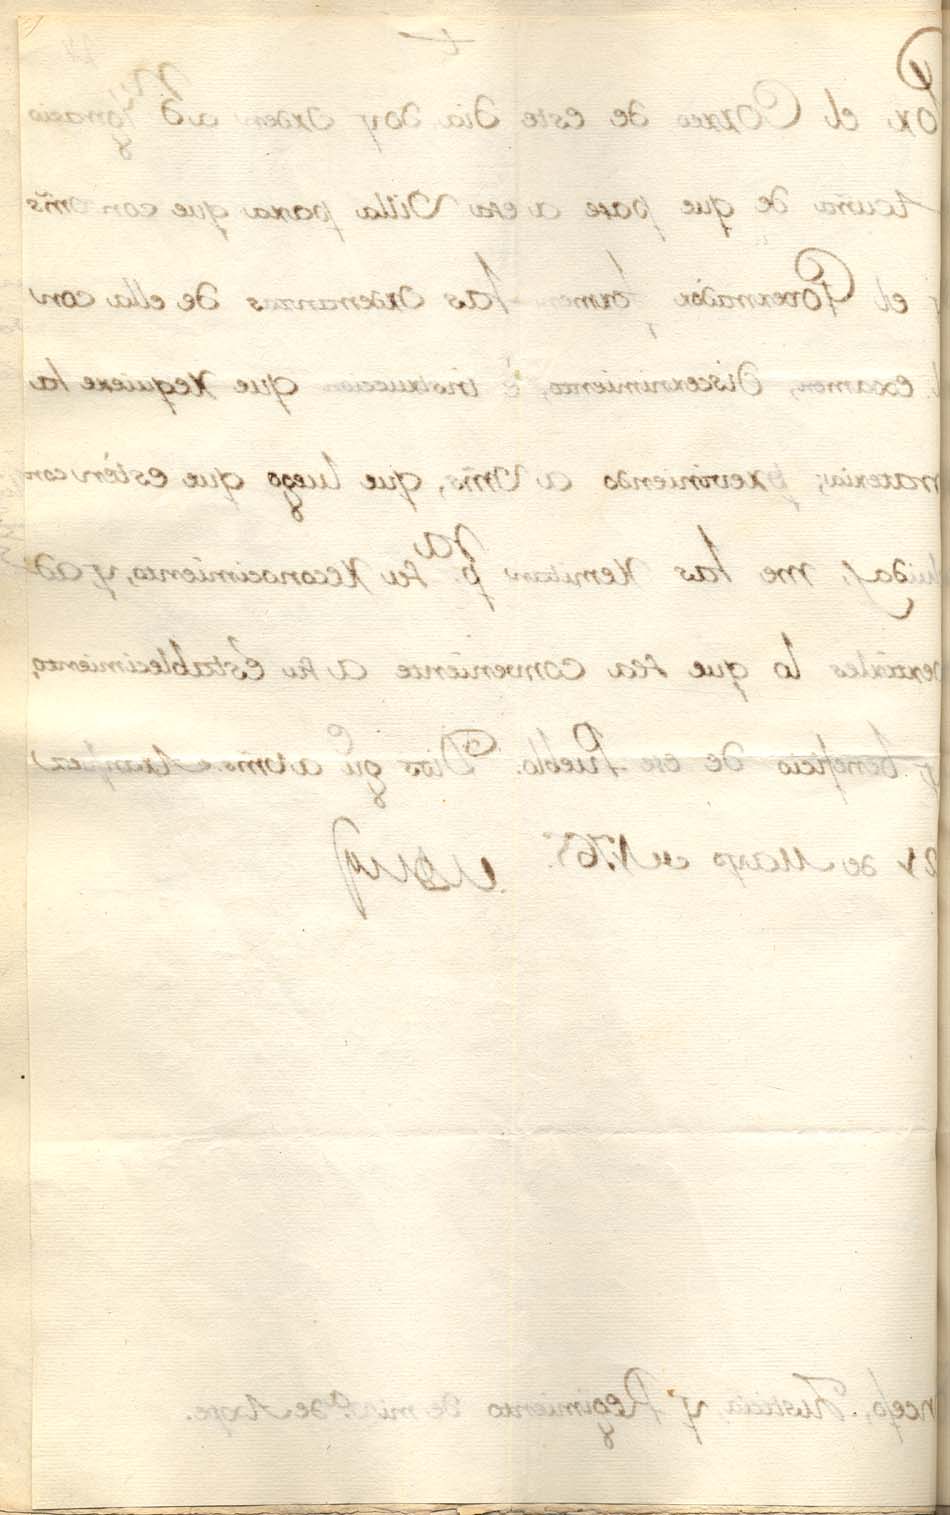 +
Por el Correo de este dia doy orden a dn Ygnacio
Acuña de que pase a esa Villa para que con Vmṡ
el Governador formen las ordenanzas de ella con
examen, discernimiento, è instruccion que requiere la
materia; previniendo a Vmṡ, que luego que estén con
luidas, me las remitan pa. su reconocimiento, y ad
vertirles lo que sea conveniente a su establecimiento,
y beneficio de ese Pueblo. Dios gue a vms. Aranjuez
21 de Mayo de 1765.
ncejo, Justicia, y Regimiento de